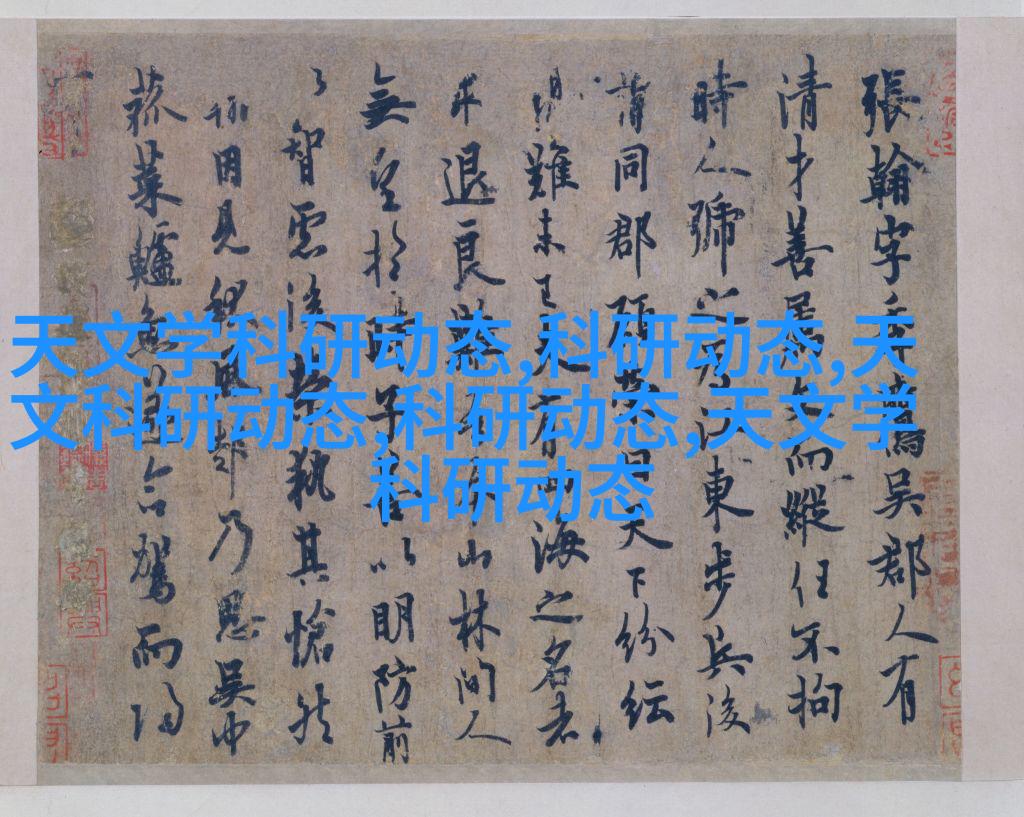 天文学科研动态,科研动态,天
文科研动态,科研动态,天文学
科研动态
張翰字季鷹吳郡人有
清才善屬文而縱任不拘
時人號之為江東步兵後
謂同郡顧榮曰天下紛紜
難未已夫有四海之名者
求退良難吾本山林間人
無望於時子善以明防前
以智慮後榮執其愴然
翰因見秋風起乃思吳中
菰菜鱸魚遂命駕而歸